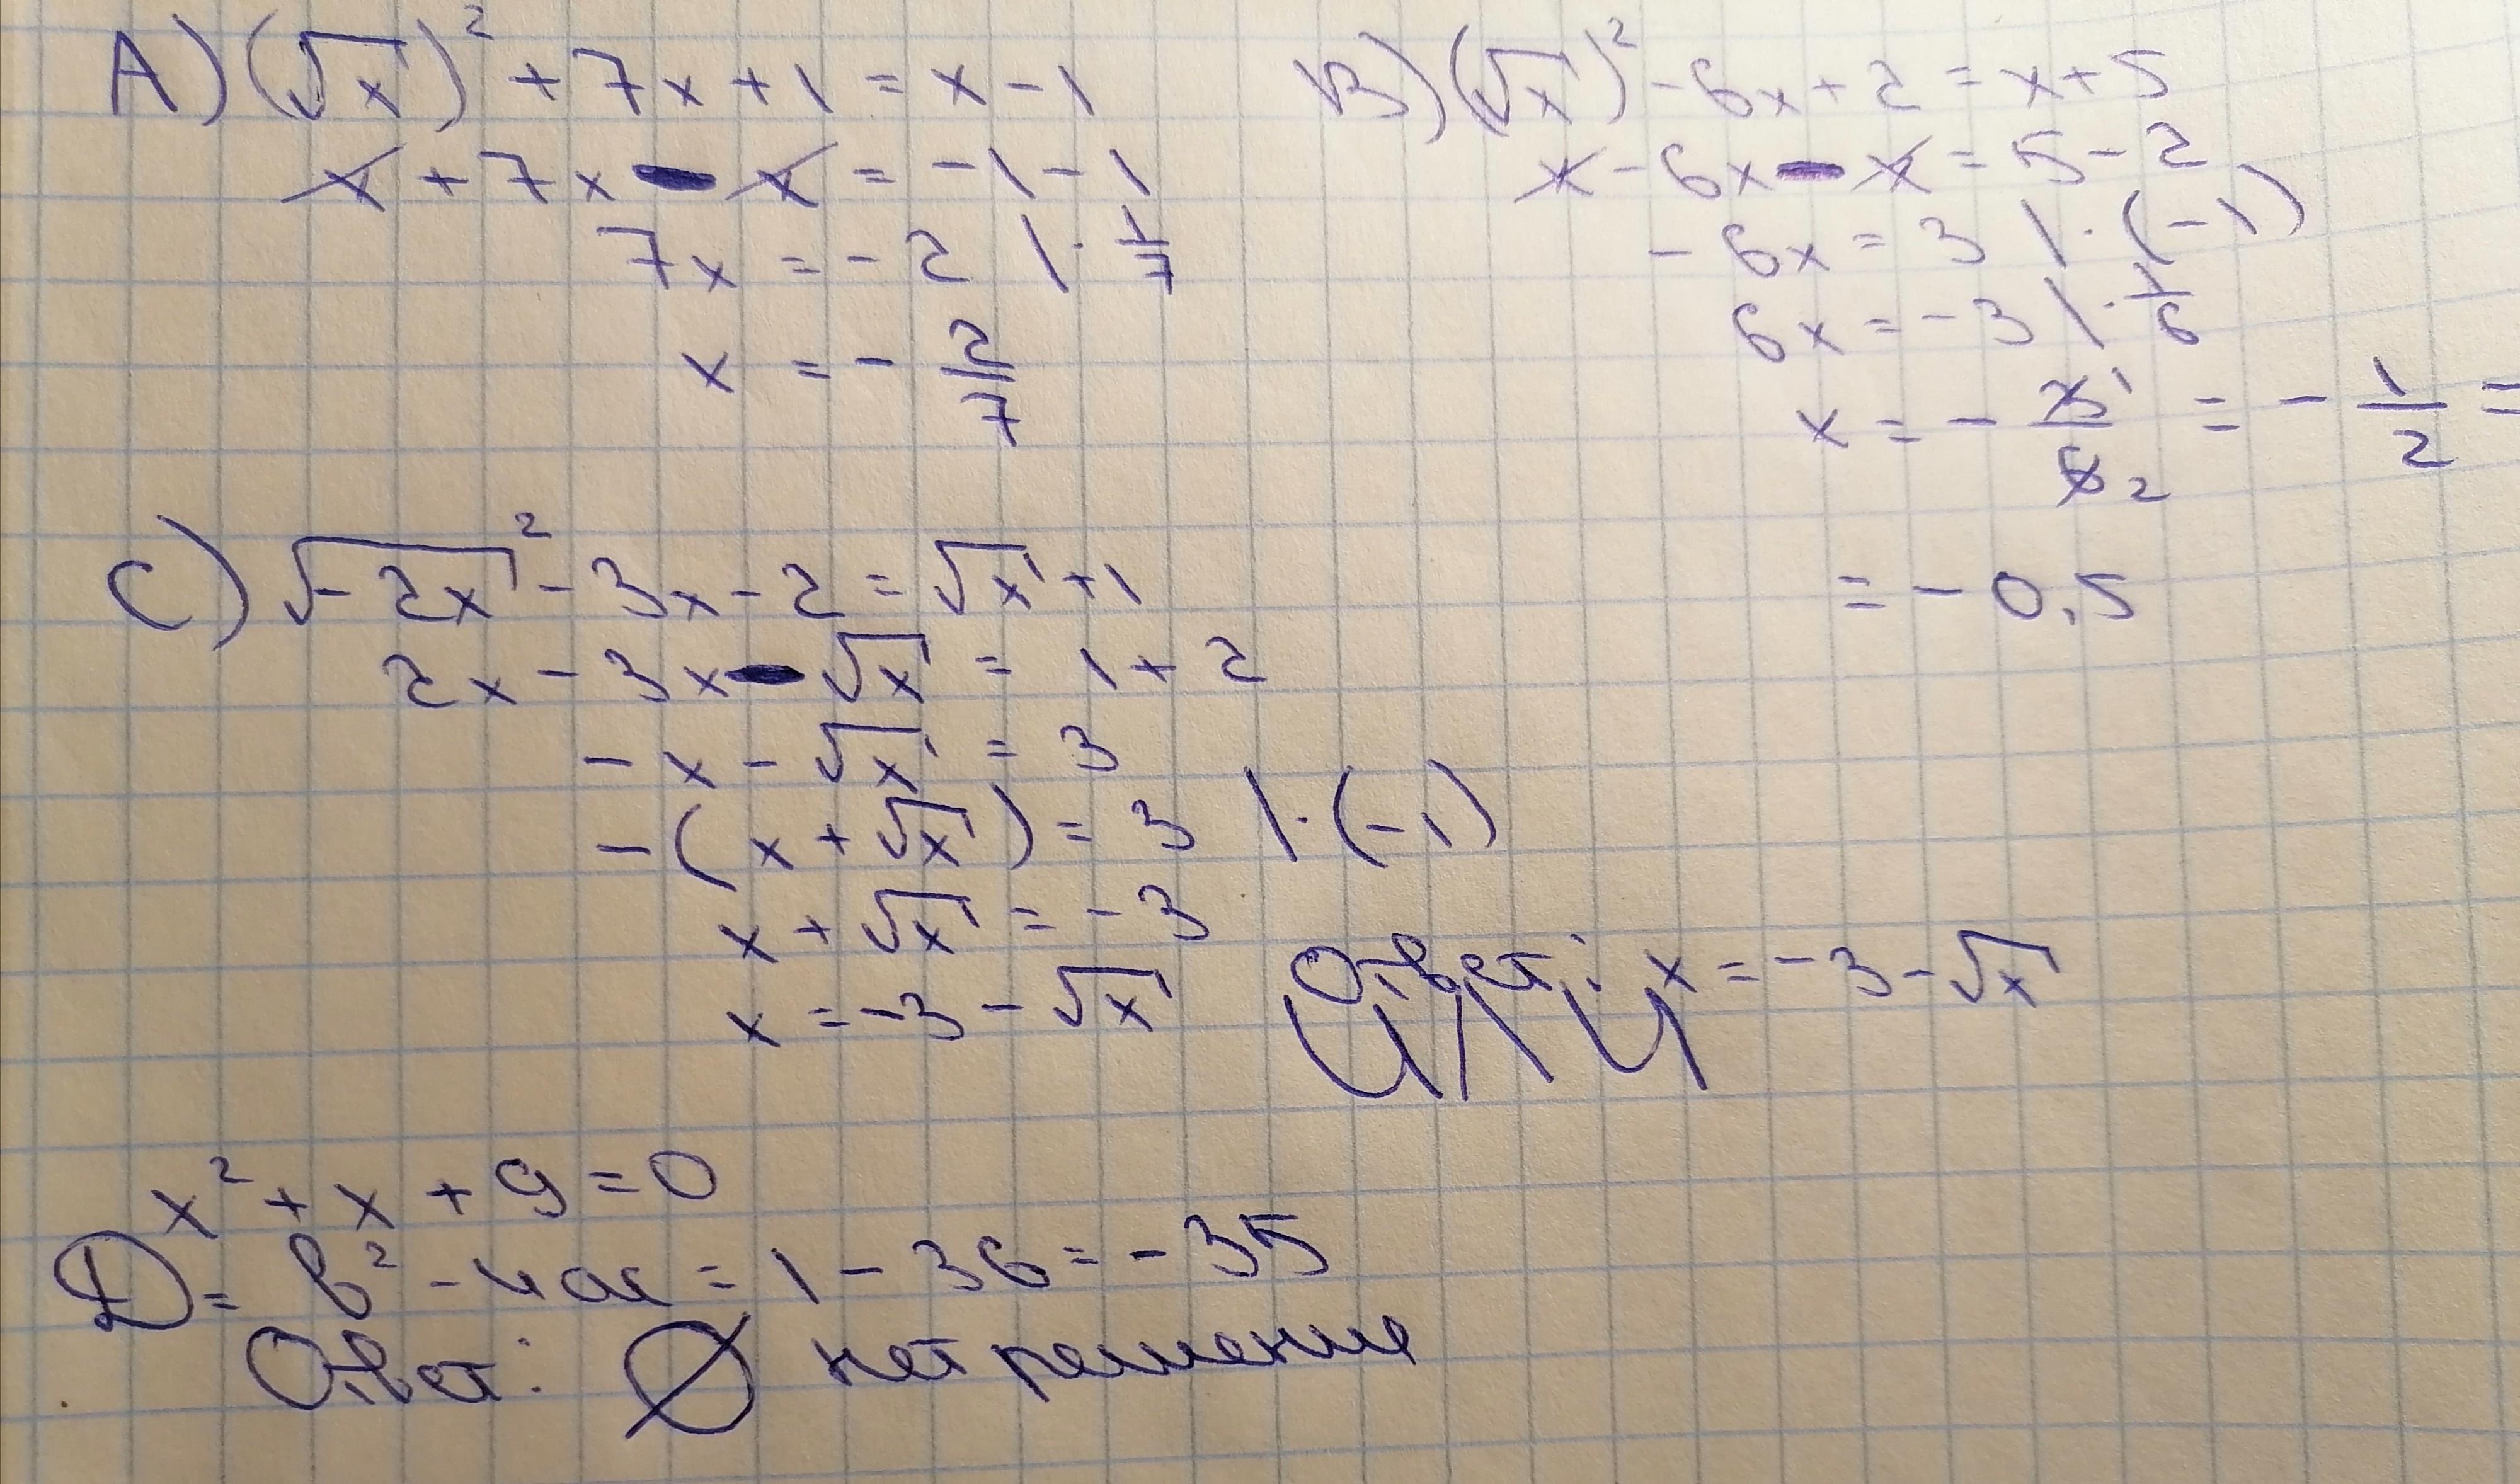 A) (√x)² + 7x + 1 = x - 1
x + 7x - x = -1 - 1
7x = -2 |· 1/7
x = - 2/7
B) (√x)² - 6x + 2 = x + 5
x - 6x - x = 5 - 2
- 6x = 3 |· (-1)
6x = -3 |· 1/6
x = - 3¹/6₂ = - 1/2 =
= - 0,5
C) √-2x² - 3x - 2 = √x + 1
2x - 3x - √x = 1 + 2
- x - √x = 3
- (x + √x) = 3 |· (-1)
x + √x = -3
x = -3 - √x
Ответ: x = -3 - √x
ИЛИ
x² + x + 9 = 0
D = b² - 4ac = 1 - 36 = -35
Ответ: ∅ нет решения